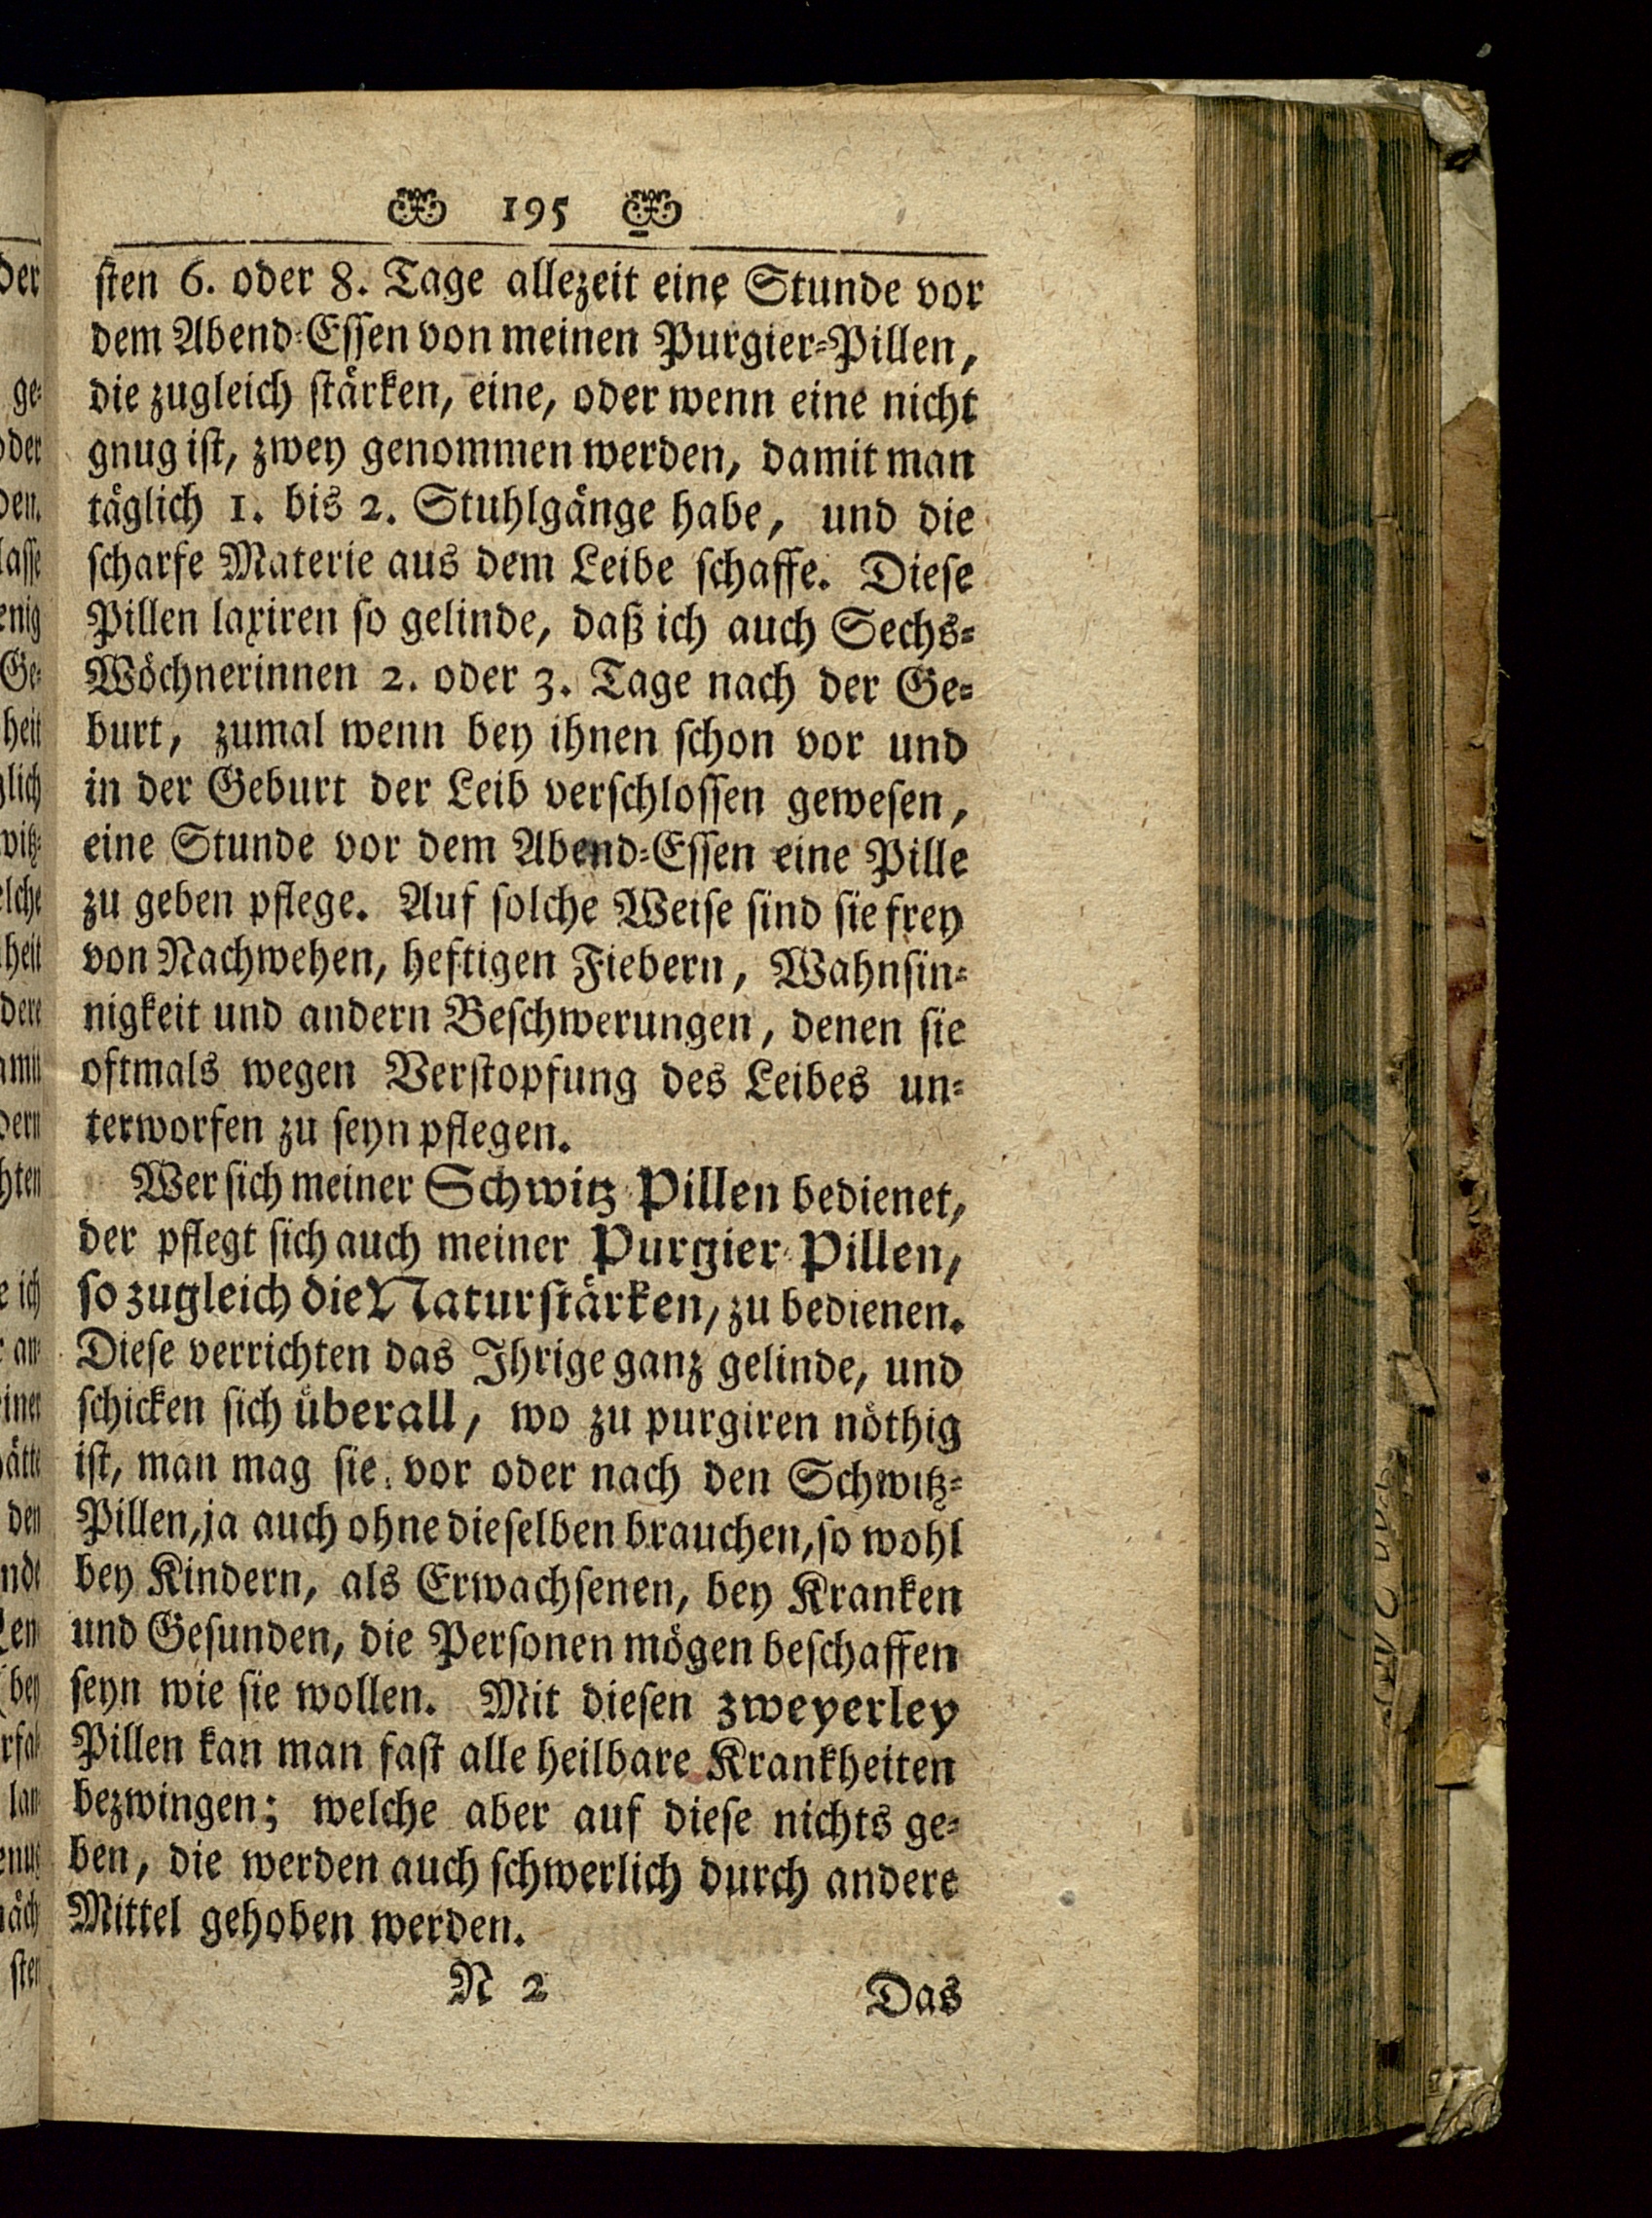 195
sten 6. oder 8. Tage allezeit eine Stunde vor
dem Abend-Essen von meinen Purgier-Pillen,
die zugleich stärken, eine, oder wenn eine nicht
gnug ist, zwey genommen werden, damit man
täglich 1. bis 2. Stuhlgänge habe, und die
scharfe Materie aus dem Leibe schaffe. Diese
Pillen laxiren so gelinde, daß ich auch Sechs-
Wöchnerinnen 2. oder 3. Tage nach der Ge-
burt, zumal wenn bey ihnen schon vor und
in der Geburt der Leib verschlossen gewesen,
eine Stunde vor dem Abend-Essen eine Pille
zu geben pflege. Auf solche Weise sind sie frey
von Nachwehen, heftigen Fiebern, Wahnsin-
nigkeit und andern Beschwerungen, denen sie
oftmals wegen Verstopfung des Leibes un-
terworfen zu seyn pflegen.
Wer sich meiner Schwitz-Pillen bedienet,
der pflegt sich auch meiner Purgier-Pillen,
so zugleich die Natur stärken, zu bedienen.
Diese verrichten das Ihrige ganz gelinde, und
schicken sich überall, wo zu purgiren nöthig
ist, man mag sie vor oder nach den Schwitz-
Pillen, ja auch ohne dieselben brauchen, so wohl
bey Kindern, als Erwachsenen, bey Kranken
und Gesunden, die Personen mögen beschaffen
seyn wie sie wollen. Mit diesen zweyerley
Pillen kan man fast alle heilbare Krankheiten
bezwingen; welche aber auf diese nichts ge-
ben, die werden auch schwerlich durch andere
Mittel gehoben werden.
N 2 Das